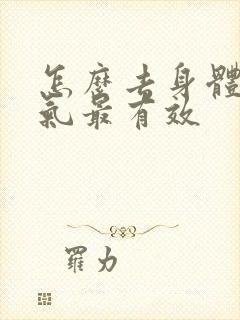 怎麽去身體
氣最有效
羅力